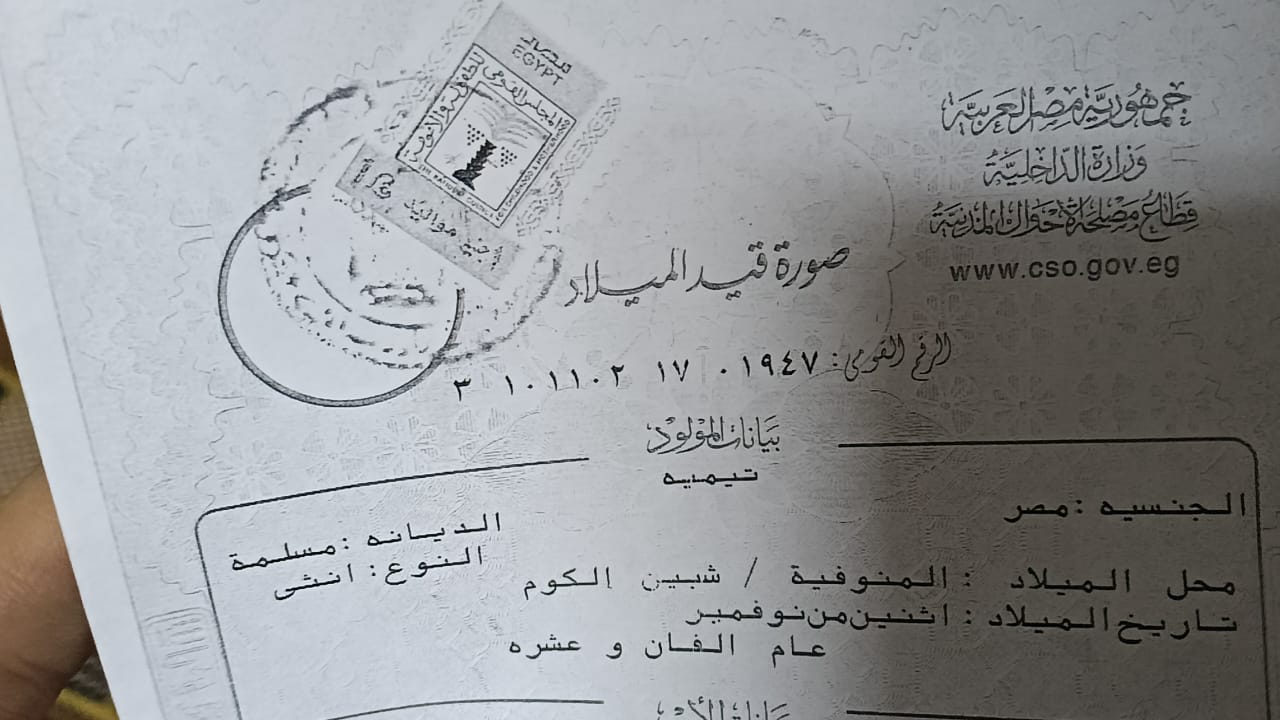 جمهورية مصر العربية
وزارة الداخلية
قطاع مصلحة الأحوال المدنية
www.cso.gov.eg
مصر
EGYPT
المجلس القومى للطفولة والأمومة
THE NATIONAL COUNCIL FOR CHILDHOOD & MOTHERHOOD
صورة قيد الميلاد
الرقم القومى: ٣ ١٠١١٠٢ ١٧ ٠١٩٤٧
بيانات المولود
تيميه
الجنسيه :مصر
الديانه :مسلمة
النوع: انثى
محل الميلاد : المنوفية / شبين الكوم
تاريخ الميلاد : اثنين من نوفمبر
عام الفان و عشره